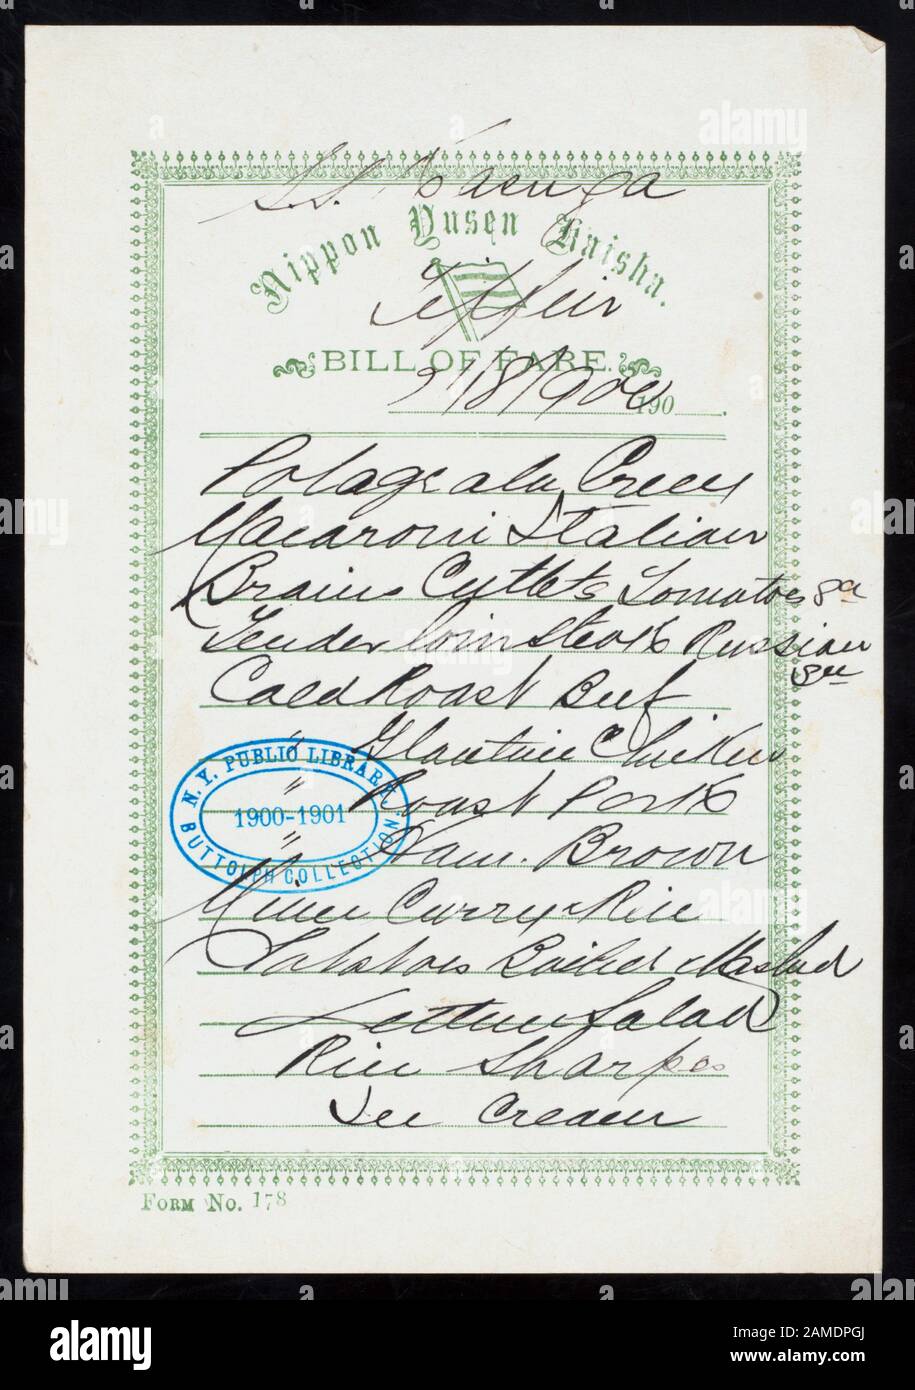 S.S.
Nippon Yusen Kaisha.
Tiffin
BILL OF FARE.
190
Potage ala Crecy
Macaroni Italian
Brains Cutlets Tomatoes Sa
Tender loin Steak Russian
Sau
Cold Roast Beef
" Glantine Chicken
" Roast Pork
" Ham. Brown
Mince Curry & Rice
Potatoes Boiled & Mashed
Lettuce Salad
Rice Sharpes
Ice Cream
N.Y. PUBLIC LIBRARY.
1900-1901
BUTTOLPH COLLECTION
FORM NO. 178
alamy
Image ID: 2AMDPGJ
www.alamy.com